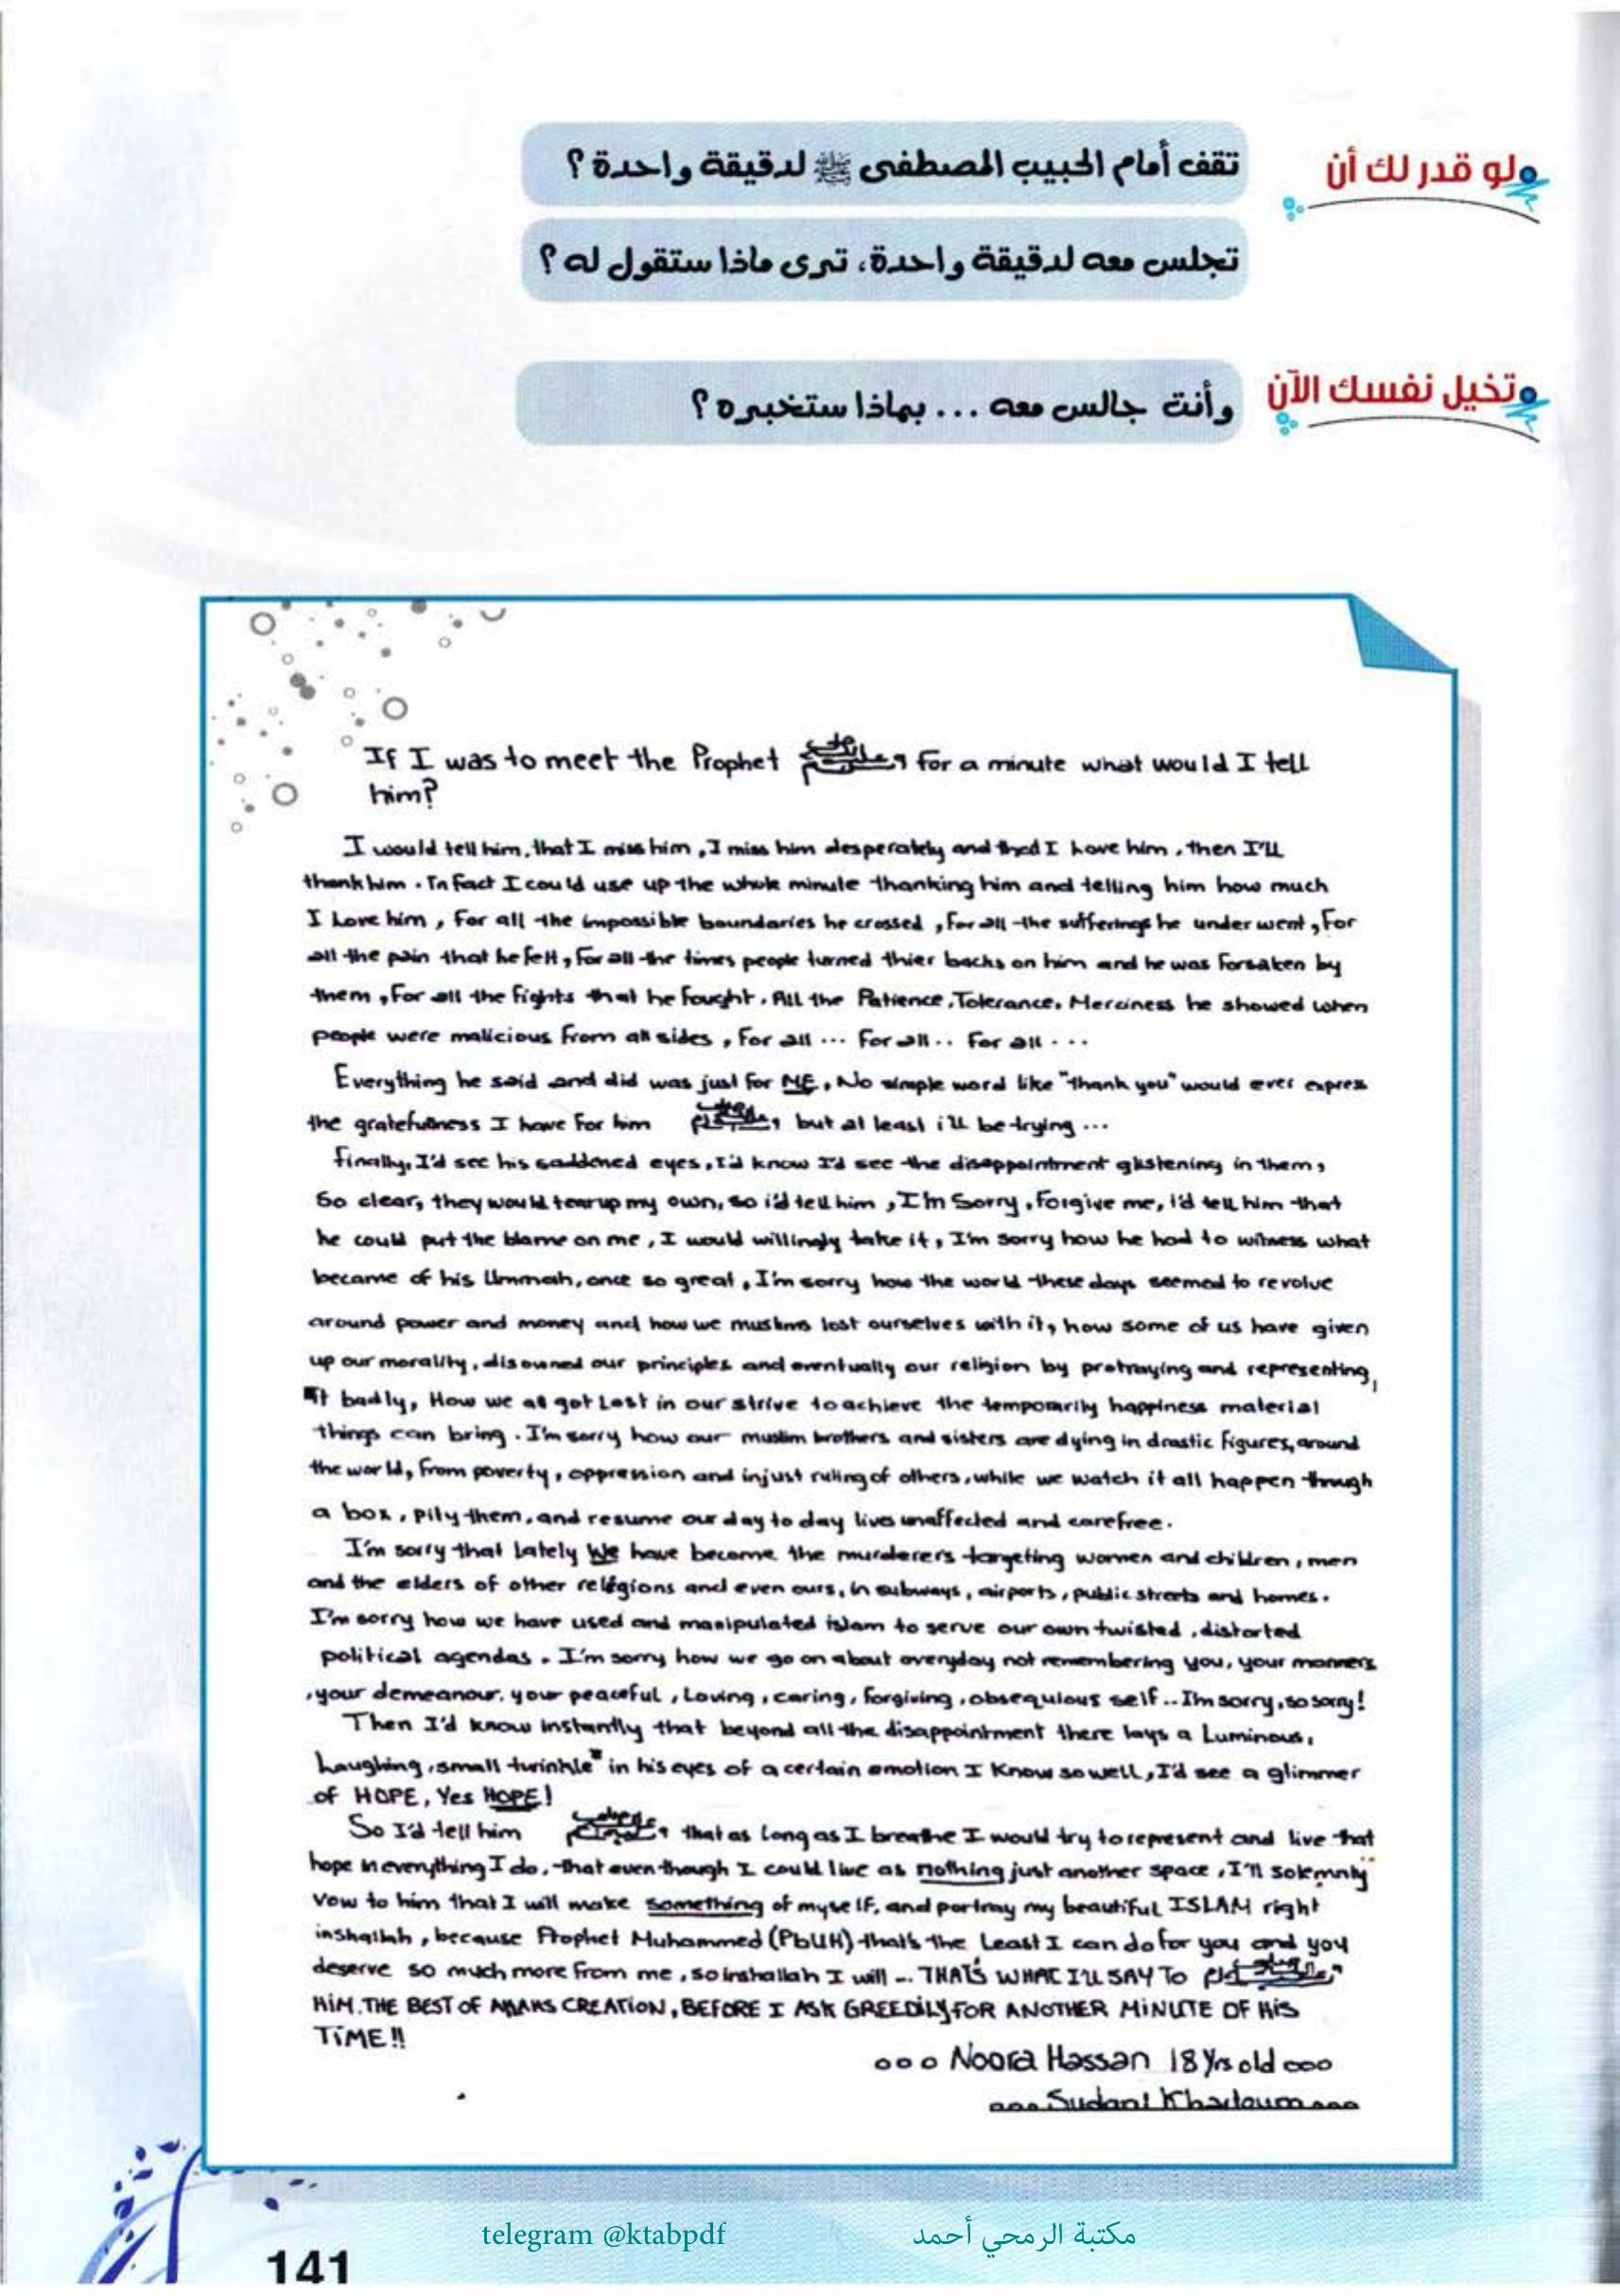 لو قدر لك أن
تقف أمام الحبيب المصطفى ﷺ لدقيقة واحدة ؟
تجلس معه لدقيقة واحدة، ترى ماذا ستقول له ؟
تخيل نفسك الآن
وأنت جالس معه ... بماذا ستخبره ؟
If I was to meet the Prophet صلى الله عليه وسلم for a minute what would I tell
him?
I would tell him, that I miss him, I miss him desperately and that I Love him, then I'll
thank him. In fact I could use up the whole minute thanking him and telling him how much
I Love him, For all the impossible boundaries he crossed, for all the sufferings he under went, For
all the pain that he felt, for all the times people turned thier backs on him and he was forsaken by
them, For all the fights that he fought. All the Patience, Tolerance, Merciness he showed when
people were malicious from all sides, For all ... For all .. For all ...
Everything he said and did was just for ME, No simple word like "thank you" would ever expres
the gratefulness I have for him صلى الله عليه وسلم, but at least i'll be trying ...
Finally, I'd see his saddened eyes, I'd know I'd see the disappointment glistening in them,
So clear, they would tear up my own, so i'd tell him, I'm Sorry, Forgive me, i'd tell him that
he could put the blame on me, I would willingly take it, I'm sorry how he had to witness what
became of his Ummah, once so great, I'm sorry how the world these days seemed to revolve
around power and money and how we muslims lost ourselves with it, how some of us have given
up our morality, disowned our principles and eventually our religion by protraying and representing,
it badly, How we all got Lost in our strive to achieve the temporarily happiness material
things can bring. I'm sorry how our muslim brothers and sisters are dying in drastic figures, around
the world, from poverty, oppression and injust ruling of others, while we watch it all happen through
a box, pity them, and resume our day to day lives unaffected and carefree.
I'm sorry that Lately We have become the murderers targeting women and children, men
and the elders of other religions and even ours, in subways, airports, public streets and homes.
I'm sorry how we have used and manipulated islam to serve our own twisted, distorted
political agendas. I'm sorry how we go on about everyday not remembering you, your manners
, your demeanour, your peaceful, Loving, caring, forgiving, obsequious self .. I'm sorry, so sorry!
Then I'd know instantly that beyond all the disappointment there lays a Luminous,
Laughing, small twinkle" in his eyes of a certain emotion I Know so well, I'd see a glimmer
of HOPE, Yes HOPE!
So I'd tell him صلى الله عليه وسلم, that as long as I breathe I would try to represent and live that
hope in everything I do, that even though I could live as nothing just another space, I'll solemnly
vow to him that I will make something of myself, and portray my beautiful ISLAM right
inshallah, because Prophet Muhammed (PbUH) that's the Least I can do for you and you
deserve so much more from me, so inshallah I will ... THAT'S WHAT I'LL SAY TO صلى الله عليه وسلم
HIM, THE BEST OF CREATION, BEFORE I ASK GREEDILY FOR ANOTHER MINUTE OF HIS
TIME!!
ooo Noora Hassan 18 Yrs old ooo
ooo Sudan! Khartoum ooo
telegram @ktabpdf
مكتبة الرمحي أحمد
141